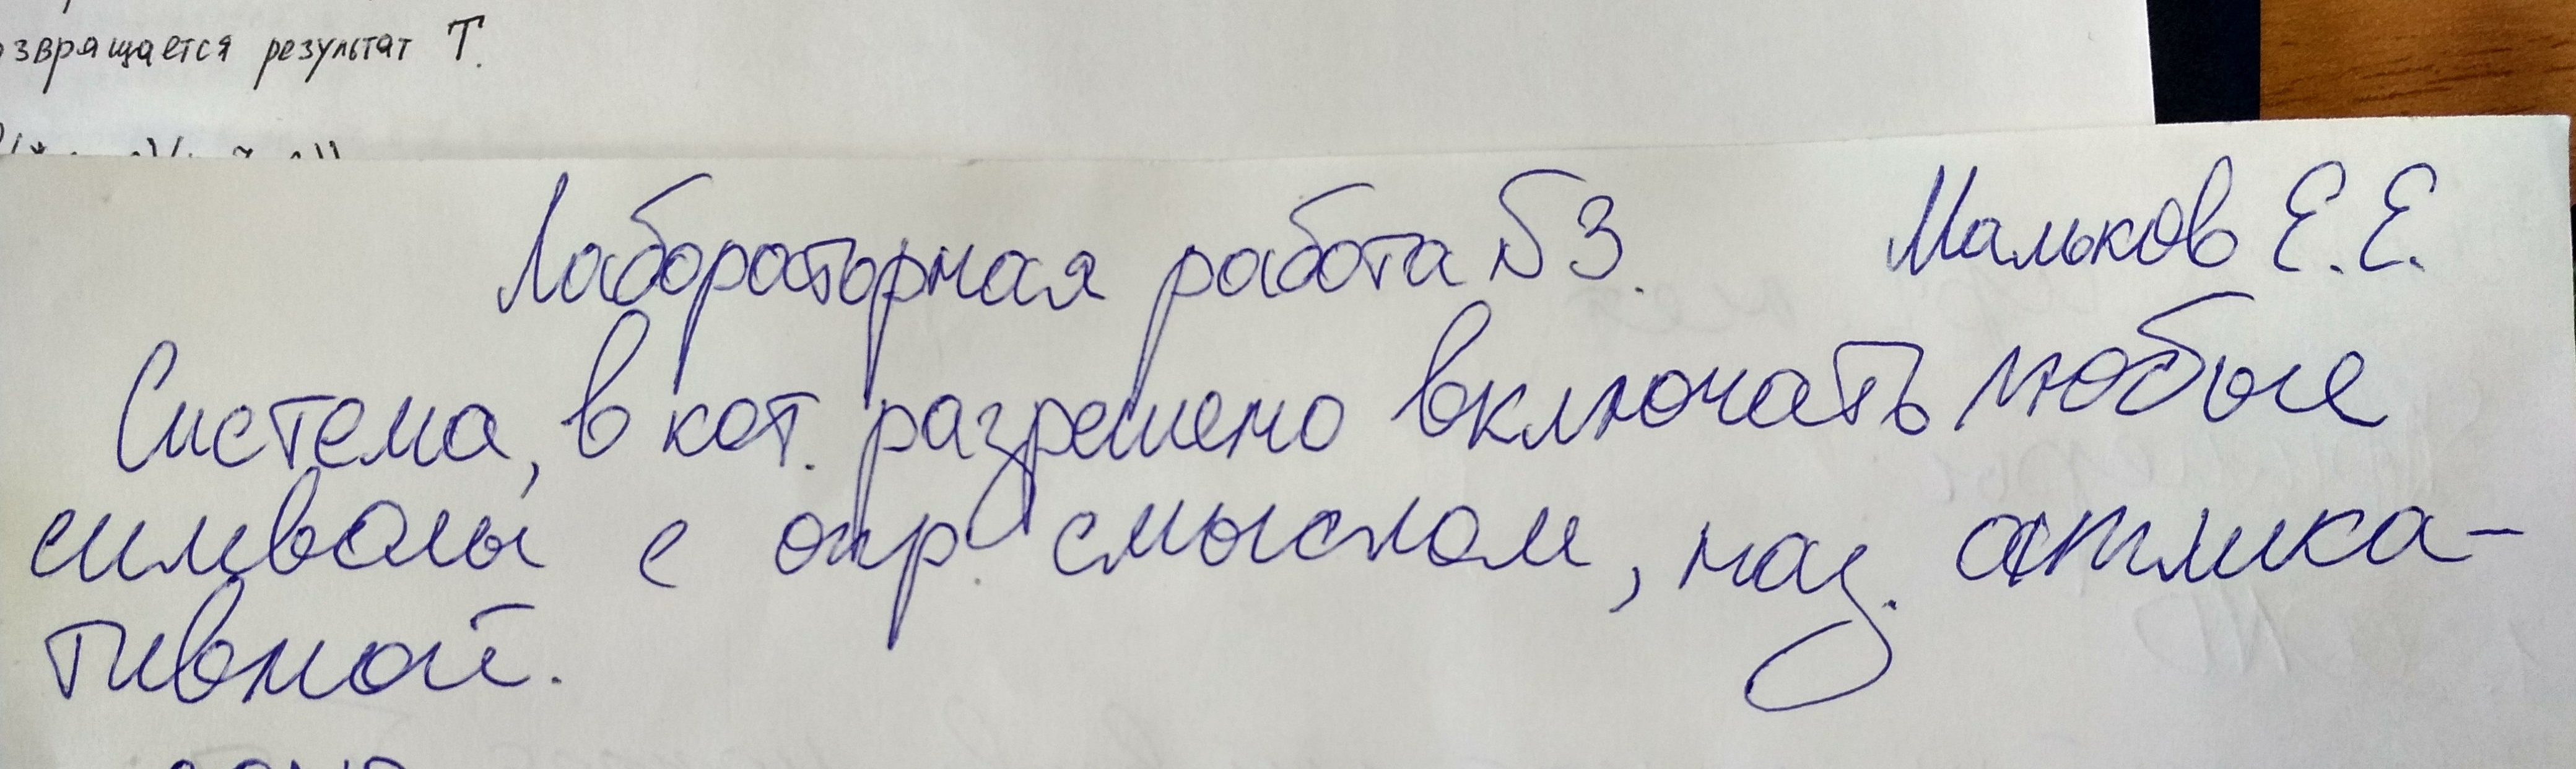 звращается результат Т.
Лабораторная работа №3. Мальков Е.Е.
Система, в кот. разрешено включать любые
символы с опр. смыслом, наз. аппlика-
тивной.